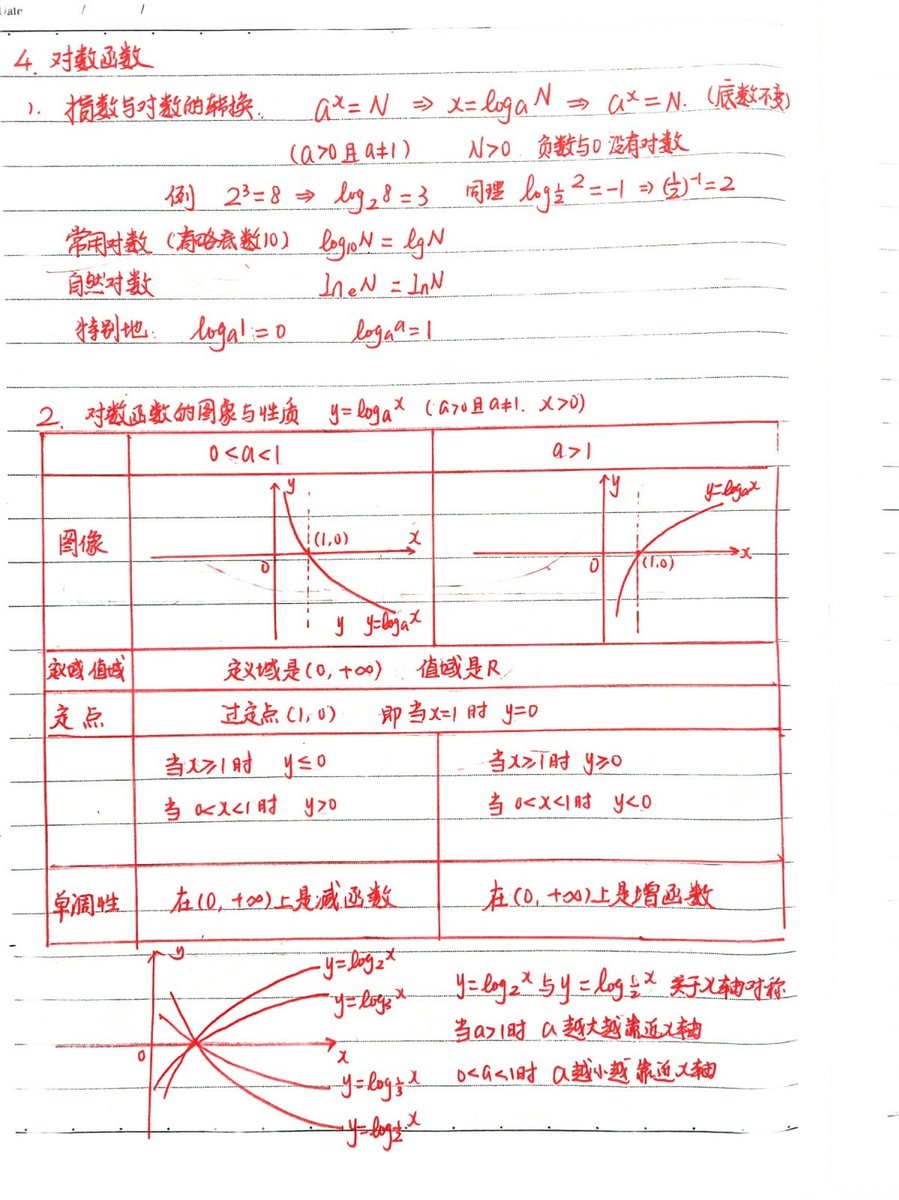 Date / /
4. 对数函数
1. 指数与对数的转换. aˣ=N ⇒ x=logₐN ⇒ aˣ=N. (底数不变)
(a>0且a≠1) N>0 负数与0没有对数
例 2³=8 ⇒ log₂8=3 同理 log½2=-1 ⇒ (½)⁻¹=2
常用对数 (省略底数10) log₁₀N=lgN
自然对数 lnₑN=lnN
特别地. logₐ1=0 logₐa=1
2. 对数函数的图象与性质 y=logₐx (a>0且a≠1. x>0)
0<a<1 a>1
图像
y (1,0) x 0 y y=logₐx
y y=logₐx 0 (1,0) x
定义域 值域 定义域是(0,+∞) 值域是R
定点 过定点(1,0) 即当x=1时 y=0
当x≥1时 y≤0 当x≥1时 y≥0
当 0<x<1时 y>0 当 0<x<1时 y<0
单调性 在(0,+∞)上是减函数 在(0,+∞)上是增函数
y y=log₂x
y=log₃x
0 x
y=log⅓x
y=log½x
y=log₂x与y=log½x 关于x轴对称
当a>1时 a越大越靠近x轴
0<a<1时 a越小越靠近x轴